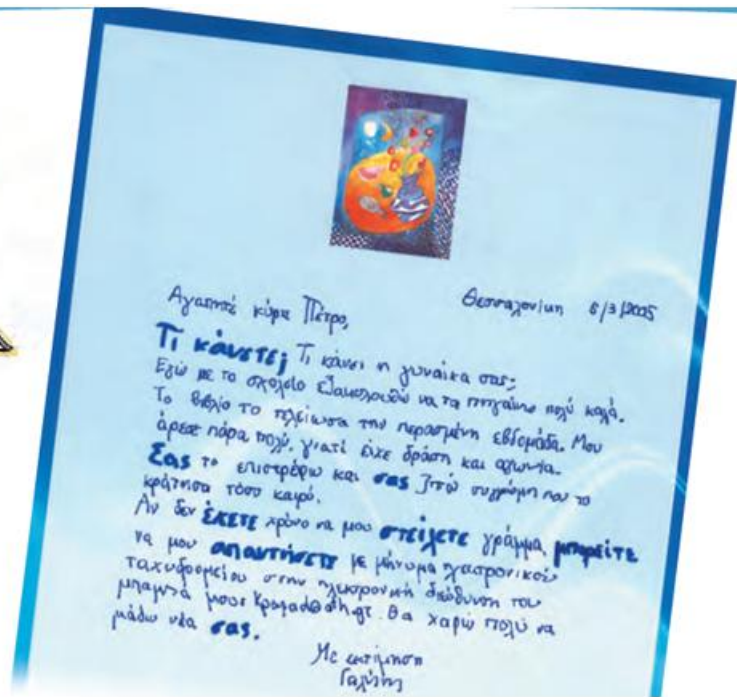 Θεσσαλονίκη 6/3/2005
Αγαπητέ κύριε Πέτρο,
Τι κάνετε; Τι κάνει η γυναίκα σας;
Εγώ με το σχολείο εξακολουθώ να τα πηγαίνω πολύ καλά.
Το βιβλίο το τέλειωσα την περασμένη εβδομάδα. Μου
άρεσε πάρα πολύ, γιατί είχε δράση και αγωνία.
Σας το επιστρέφω και σας ζητώ συγγνώμη που το
κράτησα τόσο καιρό.
Αν δεν έχετε χρόνο να μου στείλετε γράμμα, μπορείτε
να μου απαντήσετε με μήνυμα ηλεκτρονικού
ταχυδρομείου στην ηλεκτρονική διεύθυνση του
μπαμπά μου: θα χαρώ πολύ να
μάθω νέα σας.
Με εκτίμηση
Γαλήνης